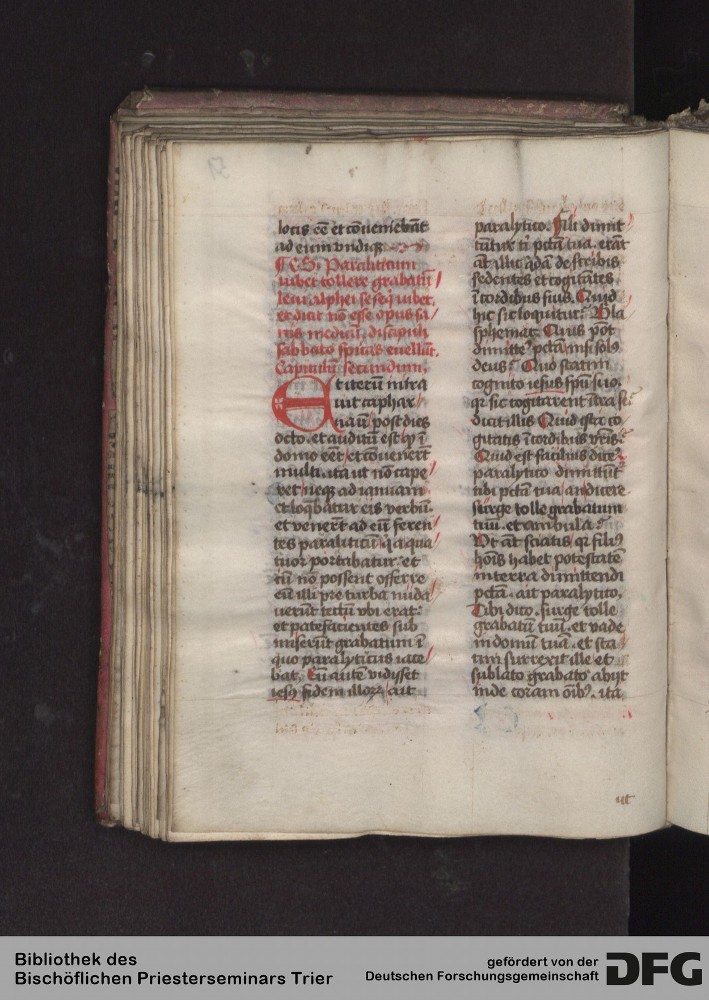 locis eē et cōueniebāt
ad eum vndiqꝫ
Paraliticum
iubet tollere grabatū
leui alphei seseqͥ iubet.
et dicit nō esse opus sa
nis medicū. discipuli
sabbato spicas euellūt.
Capitulū secundum.
Et iterū intra
uit caphar
naū post dies
octo. et auditū est qͥ ī
domo eēt. et cōuenerūt
multi. ita ut nō cape
ret neqꝫ ad ianuam
et loqͤbatur eis verbū.
et venerūt ad eū feren
tes paraliticū qͥ a qua
tuor portabatur. et
cū nō possent offerre
eū illi pre turba nuda
uerūt tectū vbi erat.
et patefacientes sub
miserūt grabatum ī
quo paralyticus iace
bat. Cū autē vidisset
iesꝰ fidem illoꝝ ait
paralytico. Fili dimit
tūtur tͥ pctā tua. erāt
āt illic qͥdā de scribis
sedentes et cogitātes
ī cordibus suis. Quid
hic sic loquitur? Bla
sphemat. Quis pōt
dimitte͛ pctā nisi solꝰ
deus? Quo statim
cognito iesus spū suo.
qꝛ sic cogitarent īt͛a se
dicit illis Quid ista co
gitatis ī cordibus vr̄is?
Quid est facilius dice͛
paralytico dimittūt͛
tibi pctā tua an dicere
surge tolle grabatum
tuū. et ambula?
Vt āt sciatis qꝛ filiꝰ
hoīs habet potestatē
in terra dimittendi
pctā. ait paralytico.
Tibi dico. surge tolle
grabatū tuū. et vade
in domū tuā. et sta
tim surrexit ille et
sublato grabato abijt
inde coram oībꝰ. ita
ut
Bibliothek des
Bischöflichen Priesterseminars Trier
gefördert von der
Deutschen Forschungsgemeinschaft
DFG